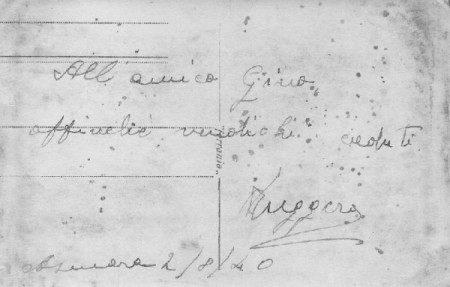 All'amico Gino,
affinché vendichi caduti
Ruggero
Asmara 2/8/40